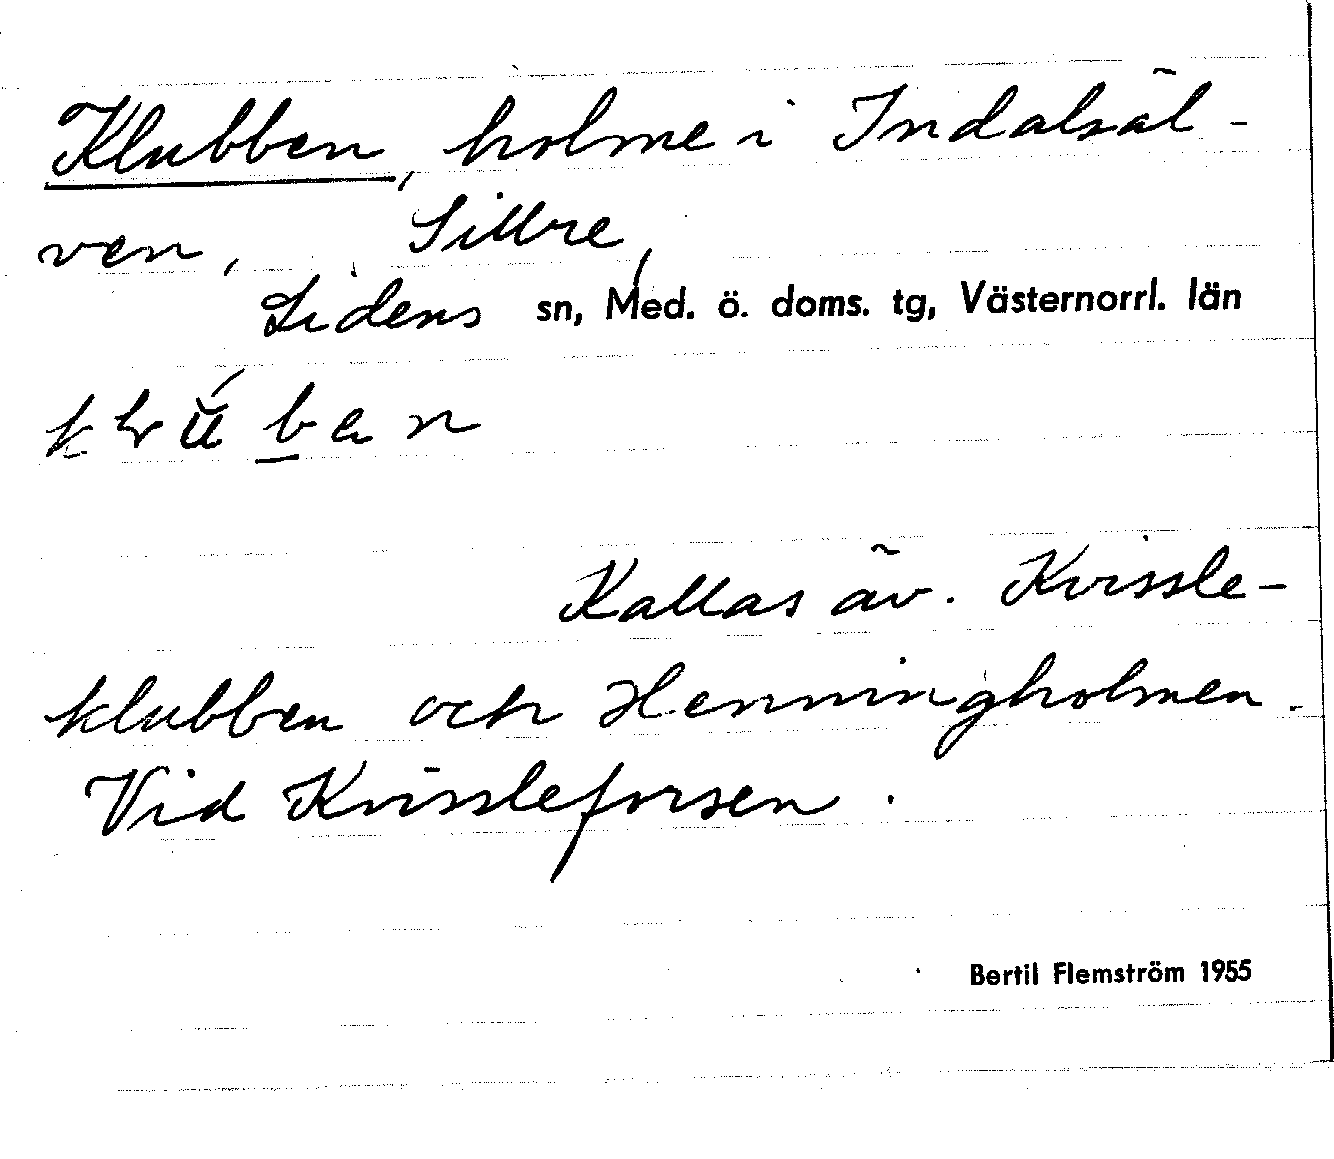 Klubben, holme i Indalsäl-
ven, Sillre,
Lidens sn, Med. ö. doms. tg, Västernorrl. län
Kallas äv. Kvissle-
klubben och Henningholmen.
Vid Kvissleforsen.
Bertil Flemström 1955